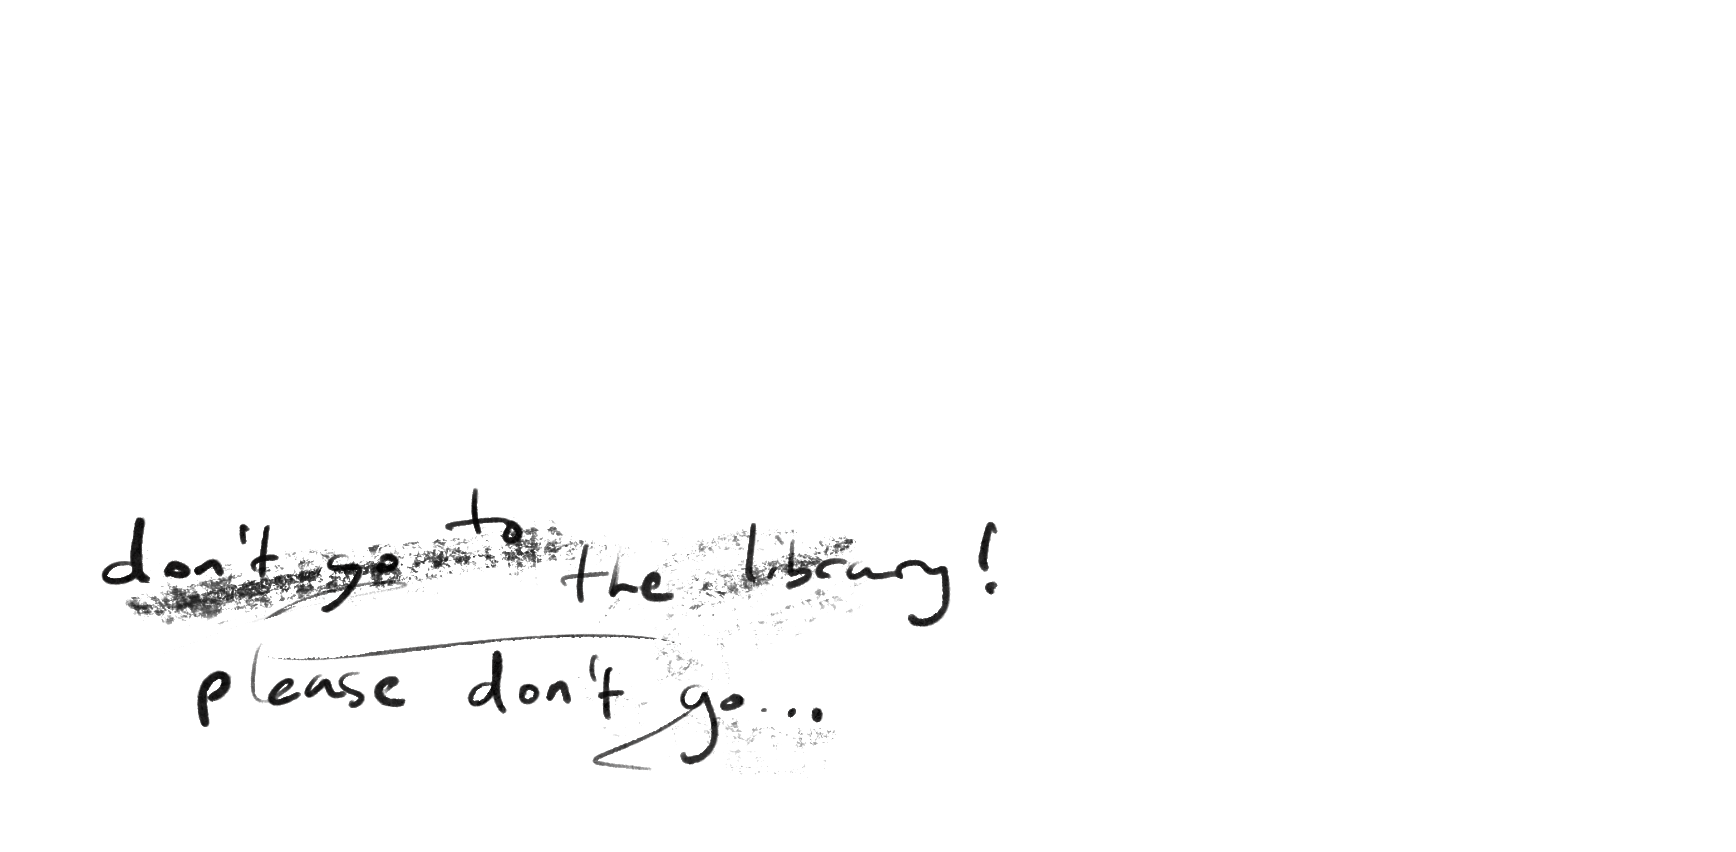 don't go to the library!
please don't go...